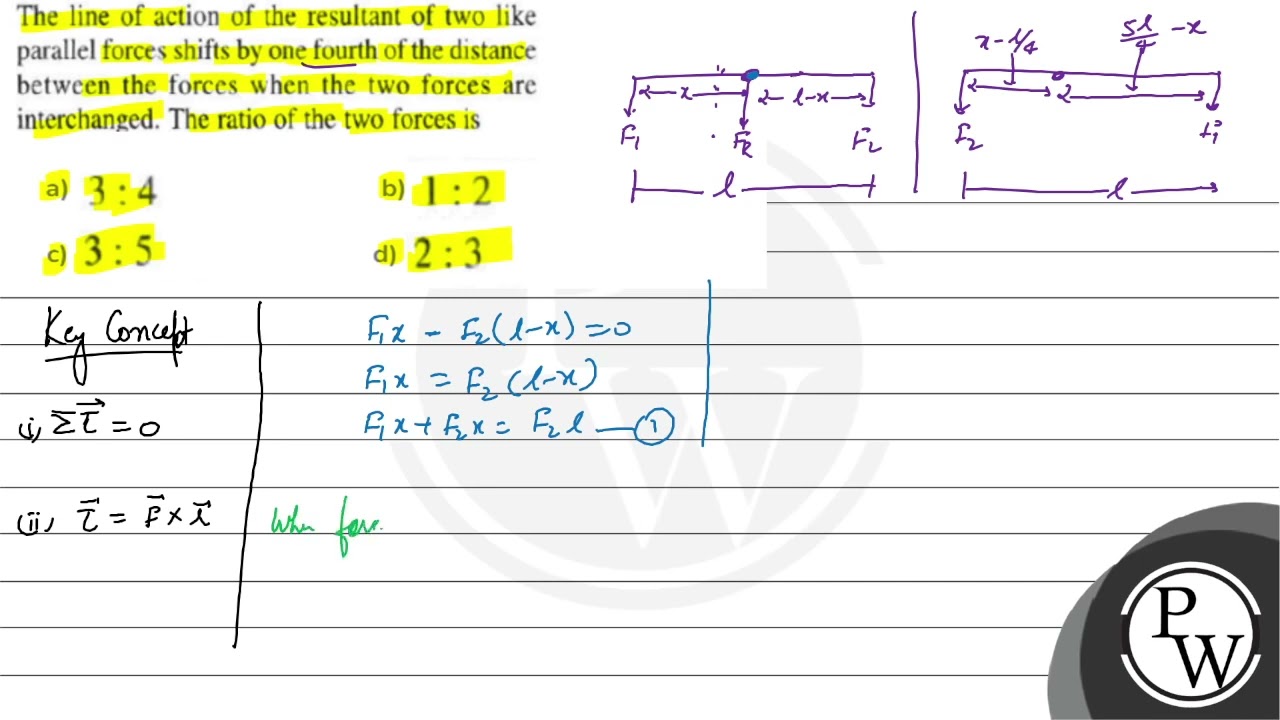 The line of action of the resultant of two like
parallel forces shifts by one fourth of the distance
between the forces when the two forces are
interchanged. The ratio of the two forces is
a) 3 : 4
b) 1 : 2
c) 3 : 5
d) 2 : 3
x
l-x
F₁
F_R
F₂
l
x-l/4
5l/4 -x
F₂
F₁
l
Key Concept
(i), Στ⃗ = 0
(ii), τ⃗ = F⃗ × r⃗
F₁x - F₂(l-x) = 0
F₁x = F₂(l-x)
F₁x + F₂x = F₂l — ①
When
P
W